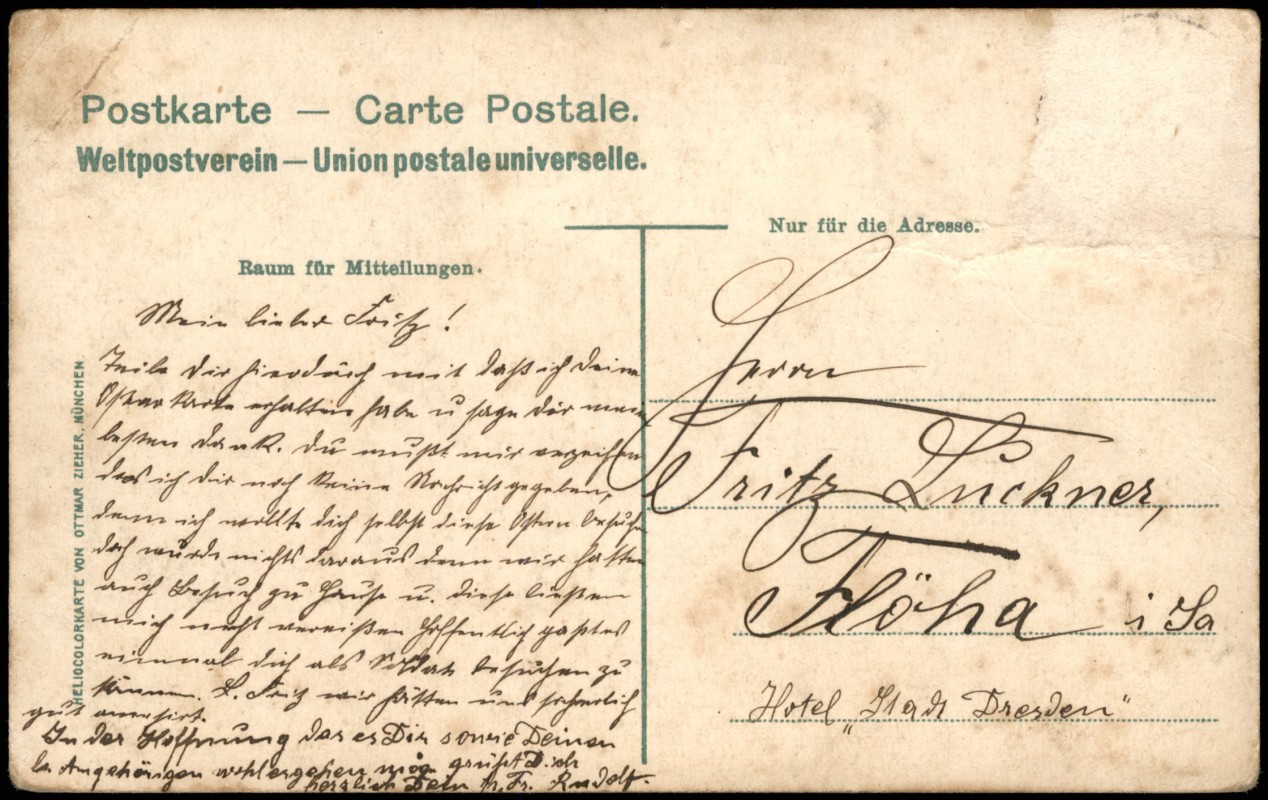 Postkarte — Carte Postale.
Weltpostverein — Union postale universelle.
Nur für die Adresse.
Raum für Mitteilungen.
Mein lieber Fritz!
Teile dir hierdurch mit daß ich deine
Osterkarte erhalten habe u sage dir mein
besten Dank. Du mußt mir verzeihen
das ich dir noch keine Nachricht gegeben,
denn ich wollte dich selbst diese Ostern besuchen
doch wurde nichts daraus denn wir hatten
auch Besuch zu Hause u. diese ließen
mich nicht vereißen hoffentlich
einmal dich als Soldat besuchen zu
können. L. Fritz wir hätten uns sicherlich
gut amusirt.
In der Hoffnung das es Dir sowie Deinen
lb Angehörigen wohlergehen mög grüßt Dich
herzlich Dein Fr. Rudolf.
HELIOCOLORKARTE VON OTTMAR ZIEHER, MÜNCHEN
Herrn
Fritz Luckner,
Flöha i Sa
Hotel „Stadt Dresden"